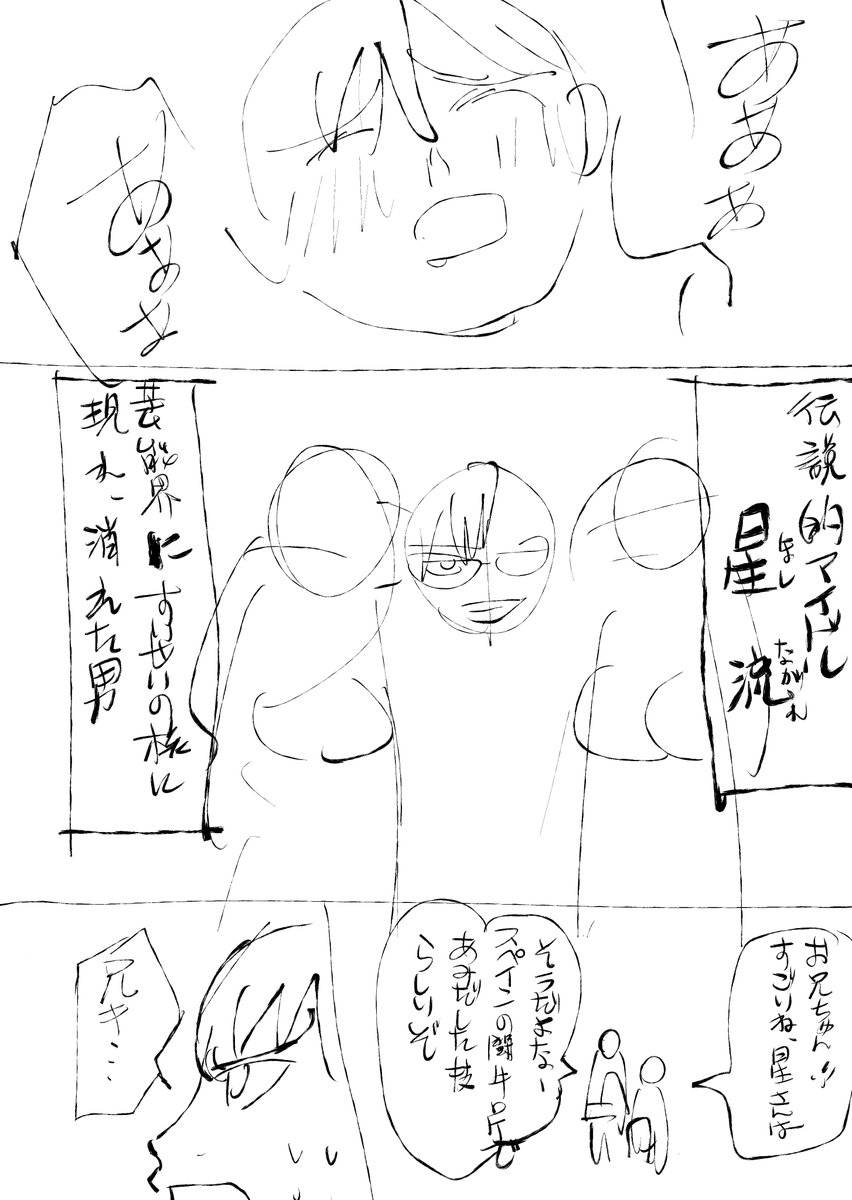 あああ
あああ
伝説的アイドル
星
ほし
流
ながれ
芸能界にすいせいの様に
現れ、消えた男
お兄ちゃん!!
すごいね、星さんは
そうだよなー
スペインの闘牛
あみだした技
らしいぞ
兄キ…